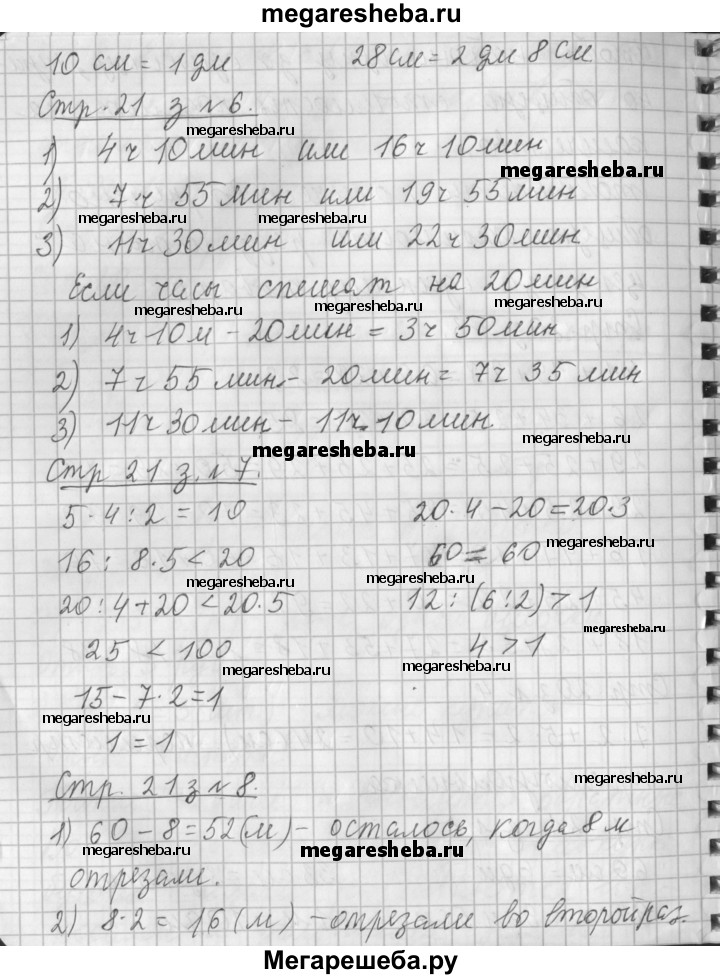 megaresheba.ru
10 см = 1 дм 28 см = 2 дм 8 см
Стр. 21 з № 6.
megaresheba.ru
1) 4 ч 10 мин или 16 ч 10 мин
megaresheba.ru
2) 7 ч 55 мин или 19 ч 55 мин
megaresheba.ru megaresheba.ru
3) 11 ч 30 мин или 22 ч 30 мин
Если часы спешат на 20 мин
megaresheba.ru megaresheba.ru
1) 4 ч 10 м - 20 мин = 3 ч 50 мин
2) 7 ч 55 мин - 20 мин = 7 ч 35 мин
3) 11 ч 30 мин - 11 ч 10 мин.
megaresheba.ru megaresheba.ru
Стр 21 з. № 7.
5 · 4 : 2 = 10 20 · 4 - 20 = 20 · 3
megaresheba.ru megaresheba.ru
16 : 8 · 5 < 20 60 = 60
megaresheba.ru megaresheba.ru
20 : 4 + 20 < 20 · 5 12 : (6 : 2) > 1
megaresheba.ru
25 < 100 4 > 1
megaresheba.ru megaresheba.ru
15 - 7 · 2 = 1
megaresheba.ru
1 = 1
Стр. 21 з № 8.
megaresheba.ru
1) 60 - 8 = 52 (м) - осталось, когда 8 м
megaresheba.ru megaresheba.ru
отрезали.
2) 8 · 2 = 16 (м) - отрезали во второй раз.
Мегарешеба.ру